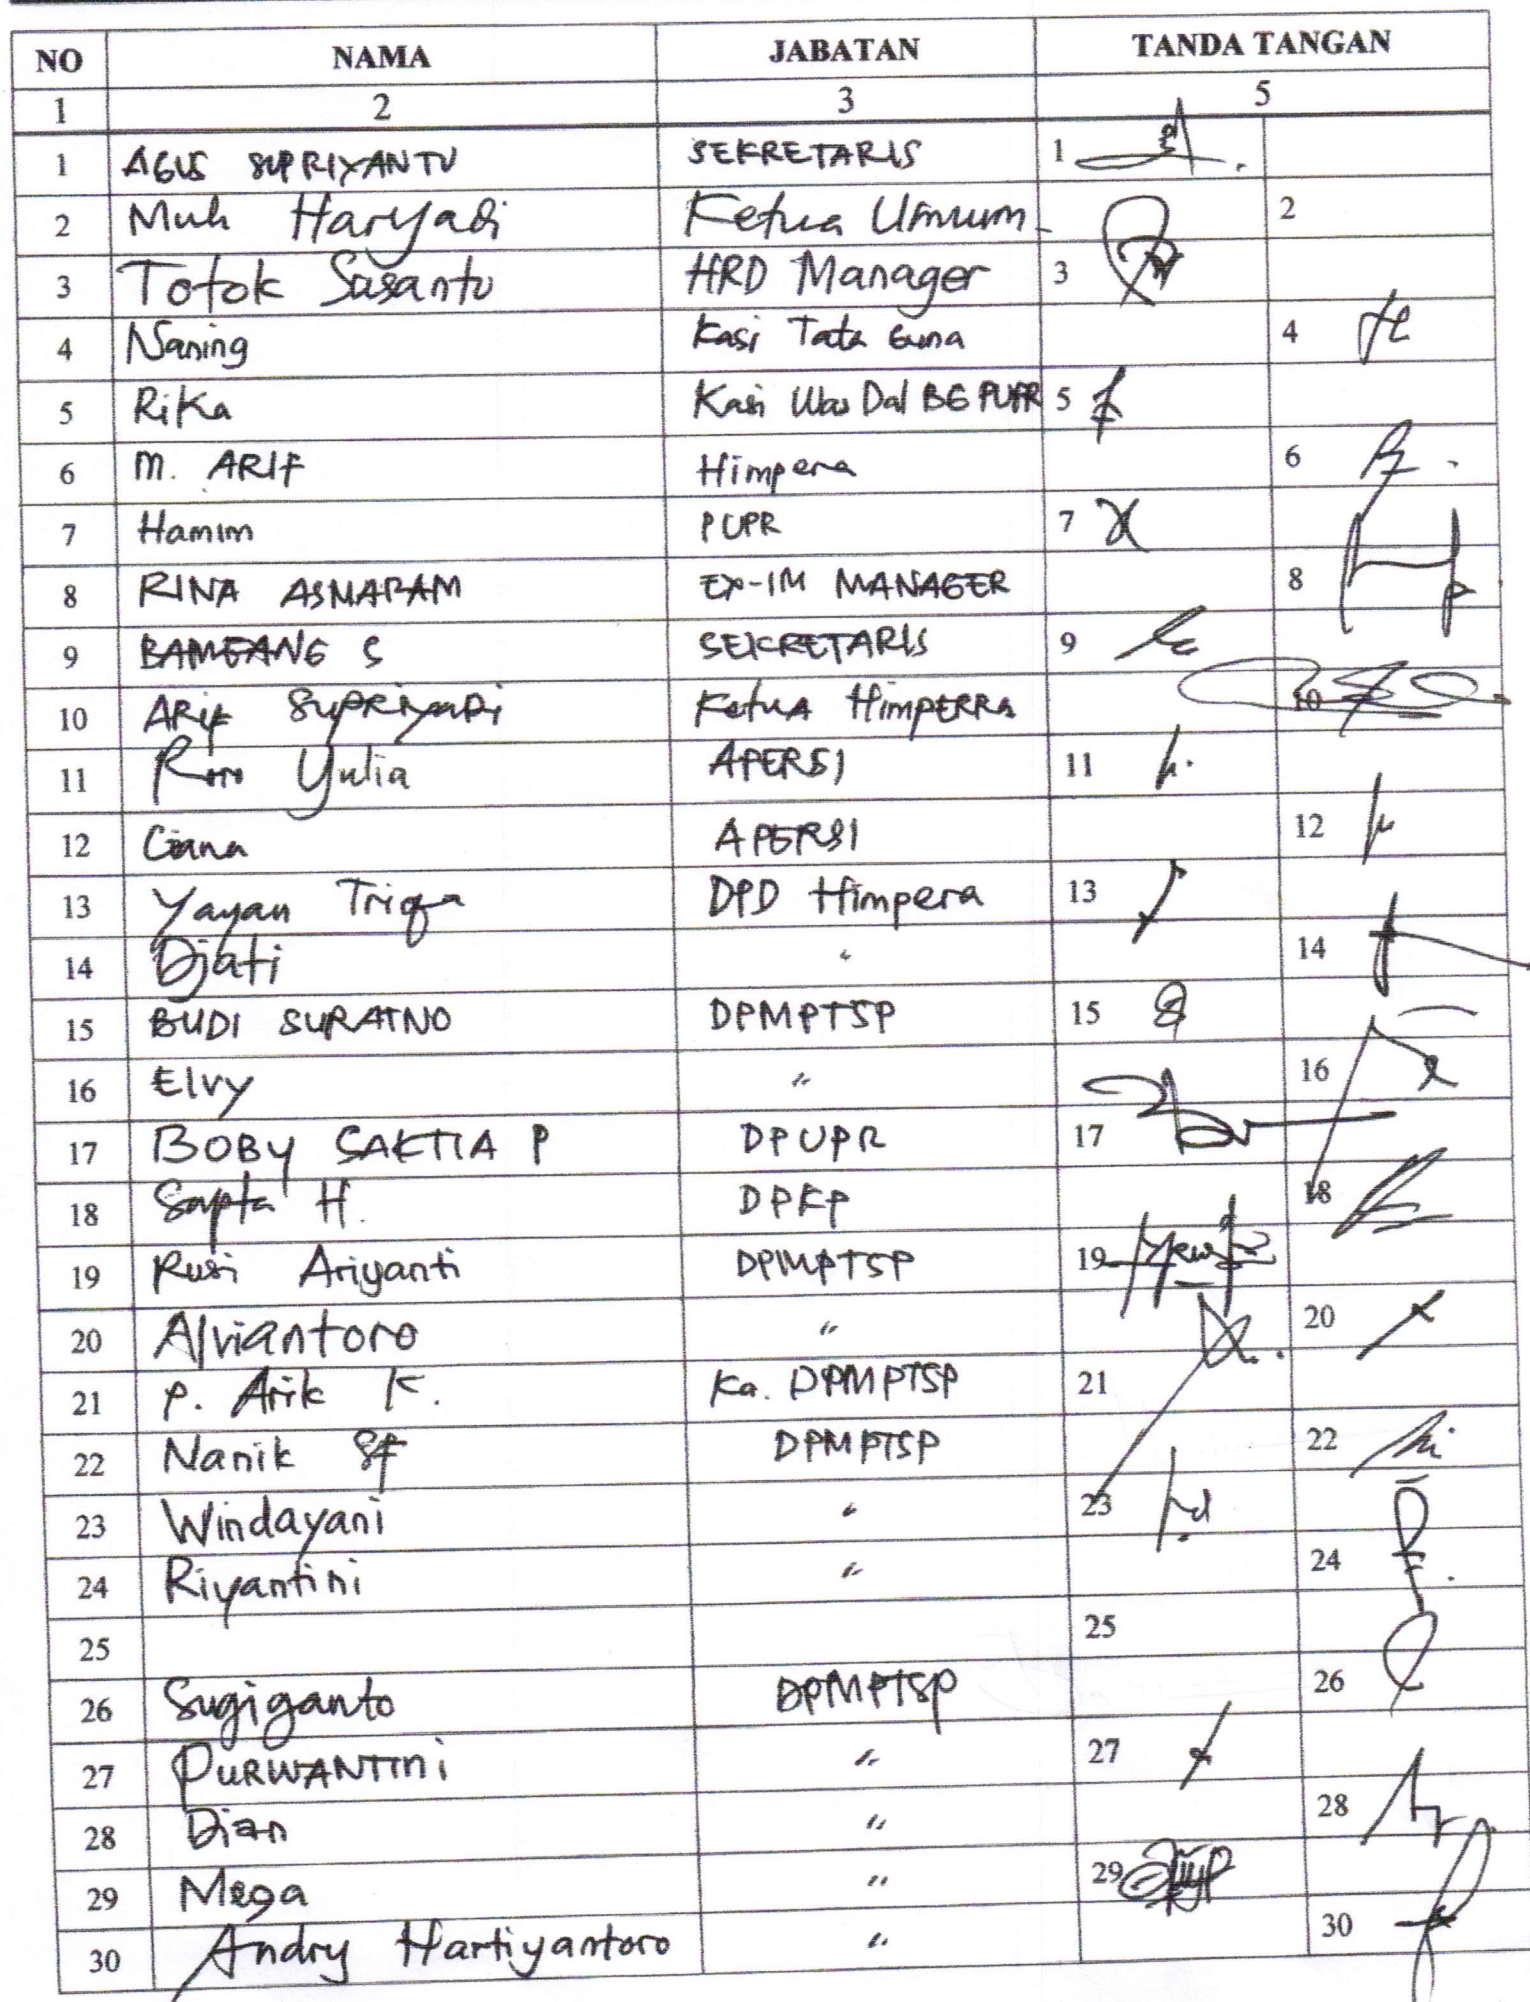 NO NAMA JABATAN TANDA TANGAN
1 2 3 5
1 AGUS SUPRIYANTO SEKRETARIS 1
2 Muh Haryadi Ketua Umum 2
3 Totok Susanto HRD Manager 3
4 Naning Kasi Tata Guna 4
5 Rika Kasi Was Dal BG PUPR 5
6 M. ARIF Himpera 6
7 Hamim PUPR 7
8 RINA EX-IM MANAGER 8
9 BAMBANG S SEKRETARIS 9
10 ARIF SUPRIYADI Ketua HIMPERRA 10
11 Yulia APERSI 11
12 APERSI 12
13 Yayan DPD Himpera 13
14 Djati " 14
15 BUDI SURATNO DPMPTSP 15
16 Elvy " 16
17 BOBY SAKTIA P DPUPR 17
18 Sapta H. DPKP 18
19 Rusi Ariyanti DPMPTSP 19
20 Alviantoro " 20
21 P. Arik K. Ka. DPMPTSP 21
22 Nanik DPMPTSP 22
23 Windayani " 23
24 Riyantini " 24
25 25
26 Sugiganto DPMPTSP 26
27 PURWANTINI " 27
28 Dian " 28
29 Mega " 29
30 Andry Hartiyantoro " 30